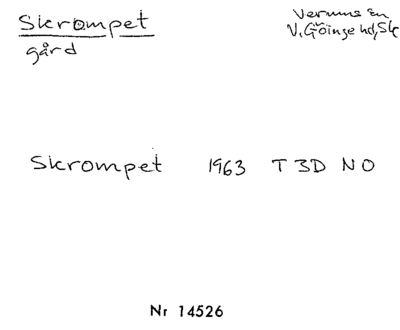 Skrompet
gård
Verums sn
V. Göinge hd, Sk
Skrompet 1963 T 3D NO
Nr 14526